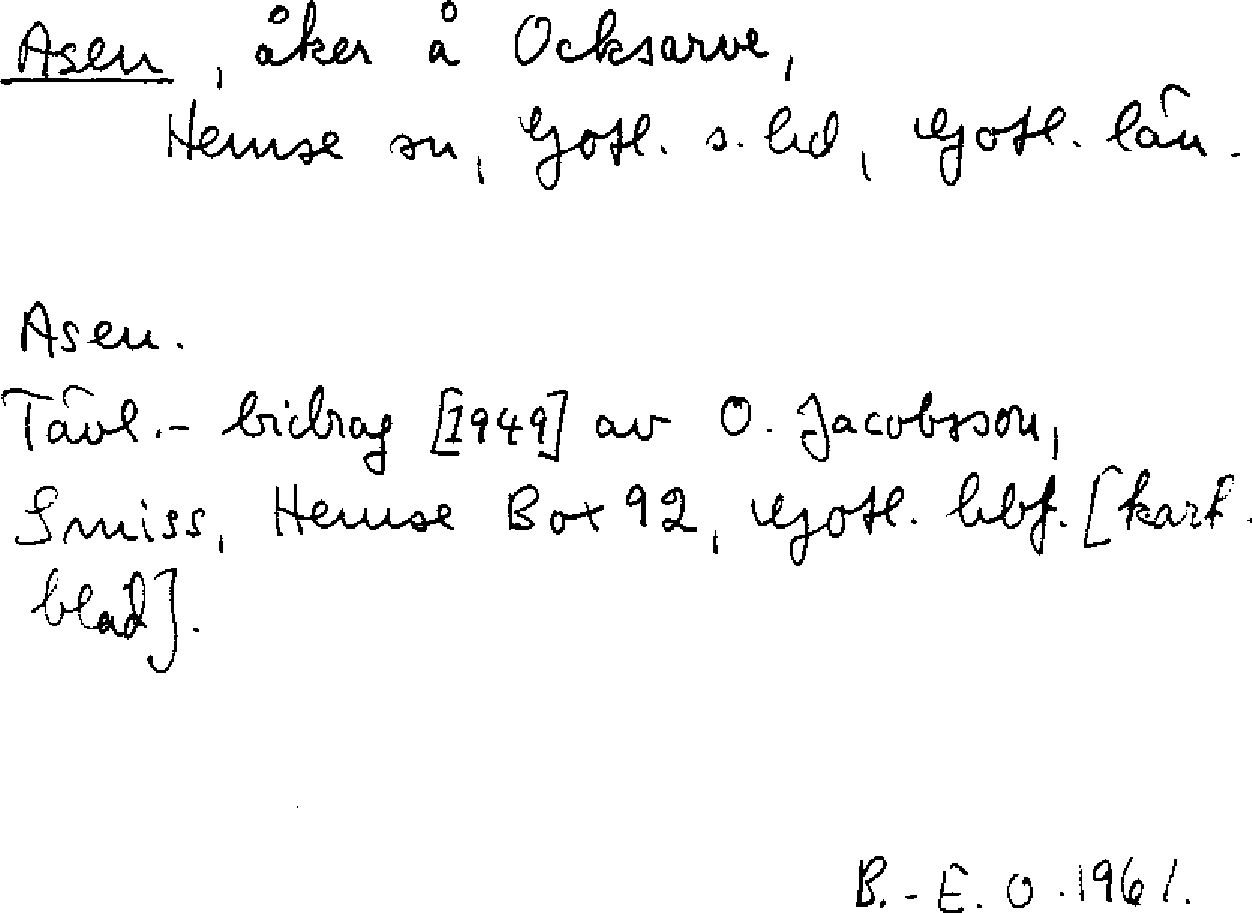 Asen, åker å Ocksarve,
Hemse sn, Gotl. s. hd, Gotl. län.
Asen.
Tävl.- bidrag [1949] av O. Jacobsson,
Smiss, Hemse Box 92, Gotl. hbf. [kart.
blad].
B.-E. O. 1961.